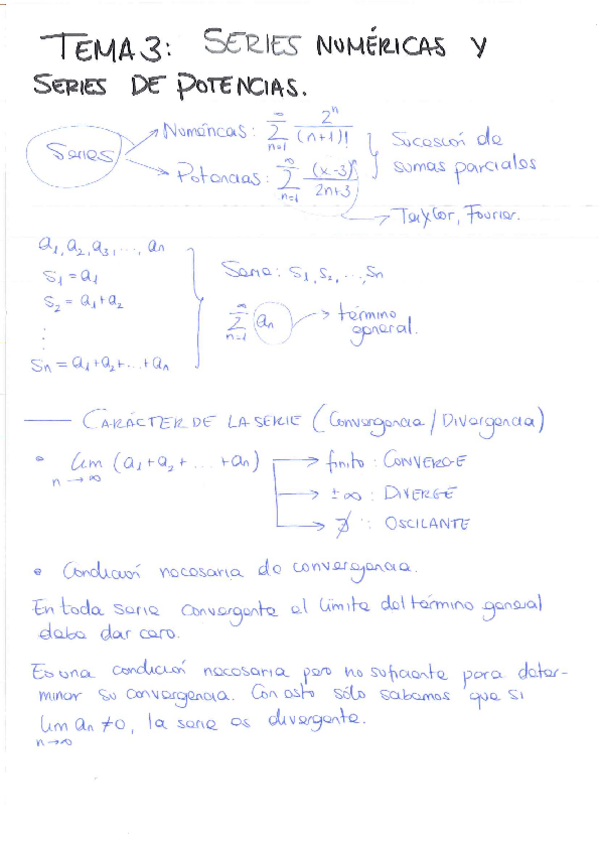 TEMA 3: SERIES NUMÉRICAS Y
SERIES DE POTENCIAS.
Series
Numéricas: ∞ Σ n=1 2^n / (n+1)!
Potencias: ∞ Σ n=1 (x-3)^n / 2n+3
Sucesión de
sumas parciales
Taylor, Fourier.
a1, a2, a3, ..., an
S1 = a1
S2 = a1+a2
⋮
Sn = a1+a2+...+an
Serie: S1, S2, ..., Sn
∞ Σ n=1 an → término
general.
CARÁCTER DE LA SERIE (Convergencia / Divergencia)
• lim n→∞ (a1+a2+ ... +an) → finito: CONVERGE
→ ±∞ : DIVERGE
→ ∄ : OSCILANTE
• Condición necesaria de convergencia.
En toda serie convergente el límite del término general
debe dar cero.
Es una condición necesaria pero no suficiente para deter-
minar su convergencia. Con esto sólo sabemos que si
lim n→∞ an ≠ 0, la serie es divergente.